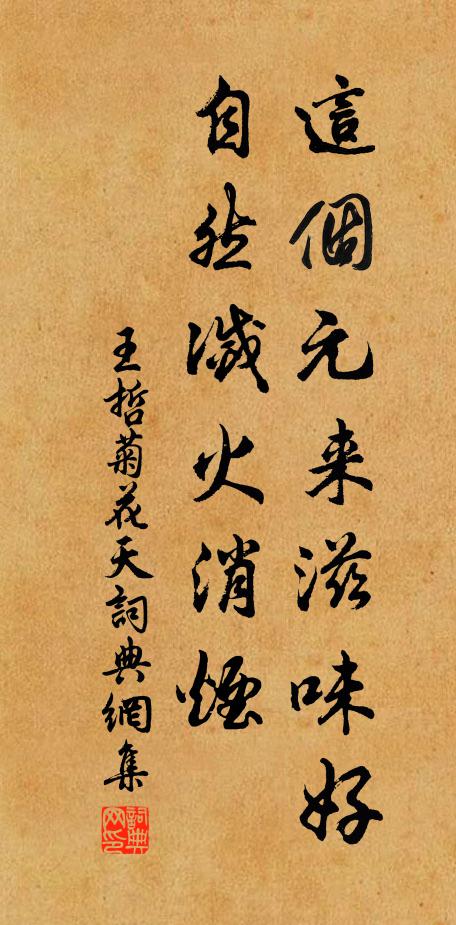 這個元来滋味好
自然滅火消煙
王哲菊花天詞典網集
詞典网印